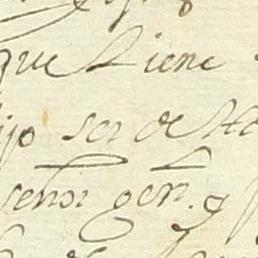 que tiene
ijo ser de
señor gen. q